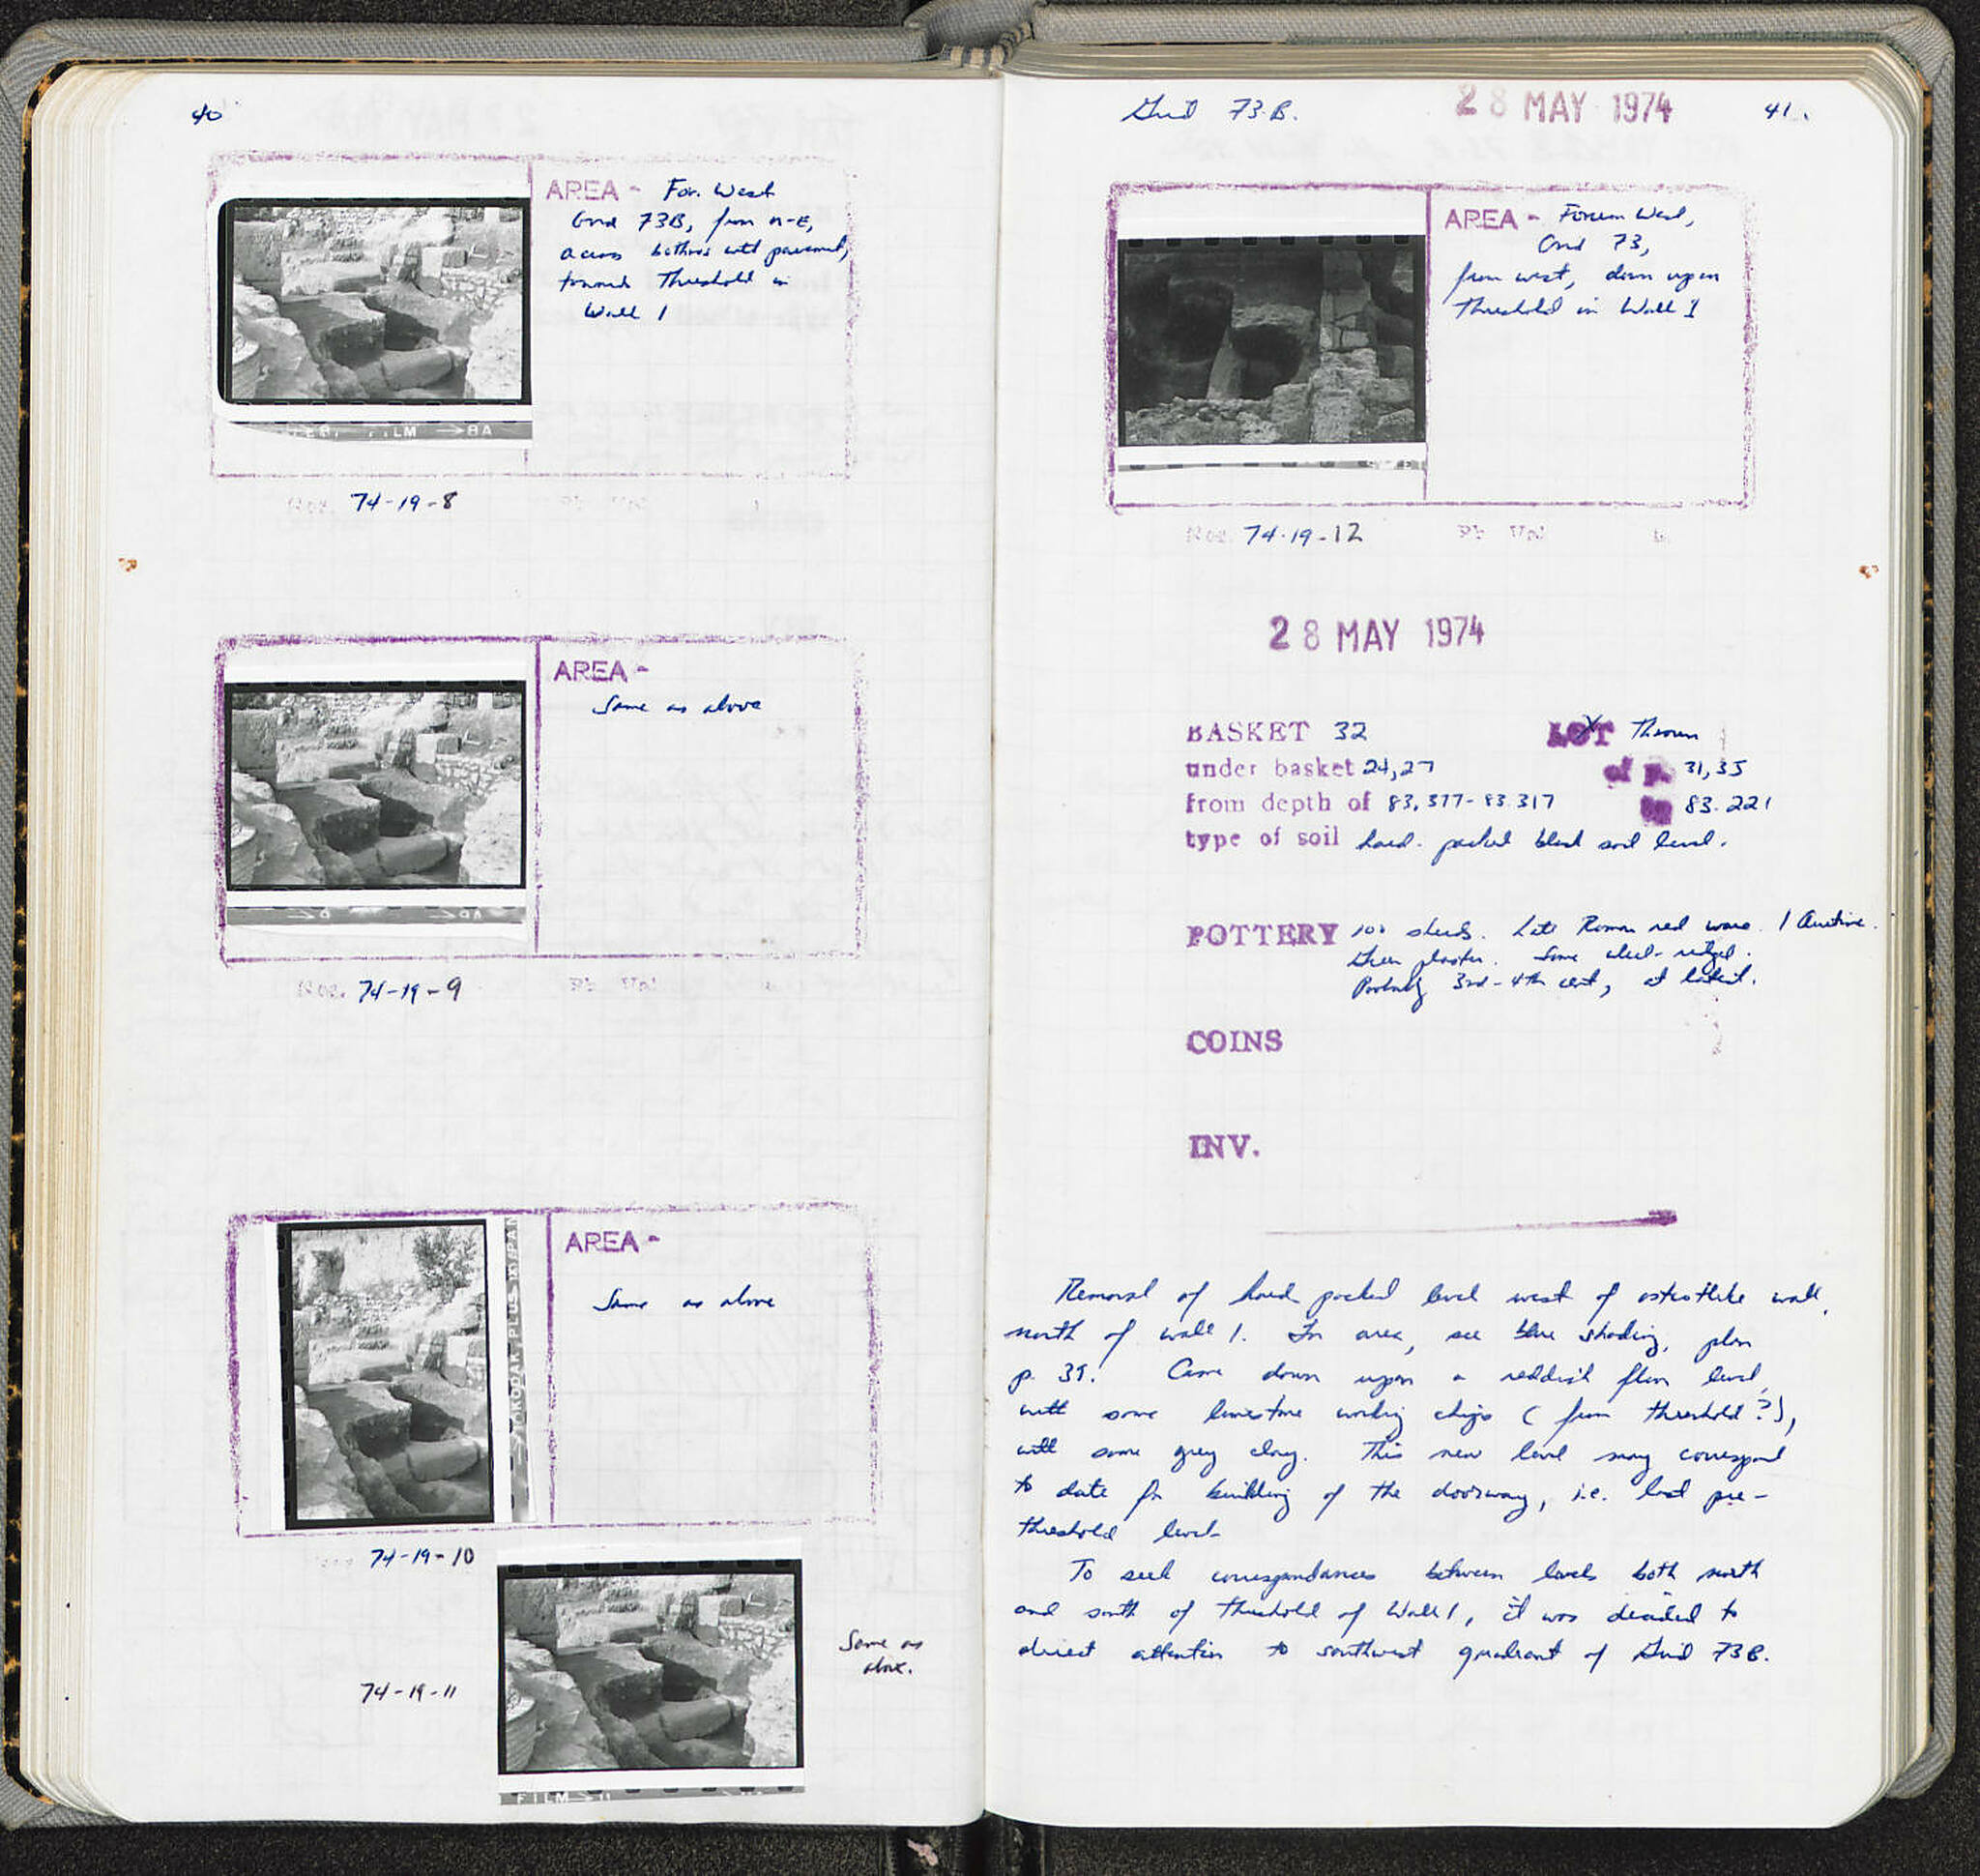 40
AREA - For. West
Grid 73B, from N-E,
across bothros with pavement,
towards Threshold in
Wall 1
FILM →8A
Neg. 74-19-8
AREA -
Same as above
Neg. 74-19-9
AREA -
Same as above
KODAK PLUS X PAN
74-19-10
Same as
above.
74-19-11
FILM → 11
Grid 73-B.
28 MAY 1974
41.
AREA - Forum West,
Grid 73,
from west, down upon
Threshold in Wall 1
Neg. 74-19-12
28 MAY 1974
BASKET 32 LOT Thrown
under basket 24,27 of p. 31,35
from depth of 83.377-83.317 to 83.221
type of soil hard-packed black soil level.
POTTERY 100 sherds. Late Roman red ware. 1 Arretine.
Green plaster. Some wheel-ridged.
Probably 3rd-4th cent, at latest.
COINS
INV.
Removal of hard packed level west of wall,
north of wall 1. For area, see blue shading, plan
p. 39. Came down upon a reddish floor level,
with some limestone working chips (from threshold?),
with some grey clay. This new level may correspond
to date for building of the doorway, i.e. last pre-
threshold level.
To seek correspondances between levels both north
and south of threshold of Wall 1, it was decided to
direct attention to southwest quadrant of Grid 73B.